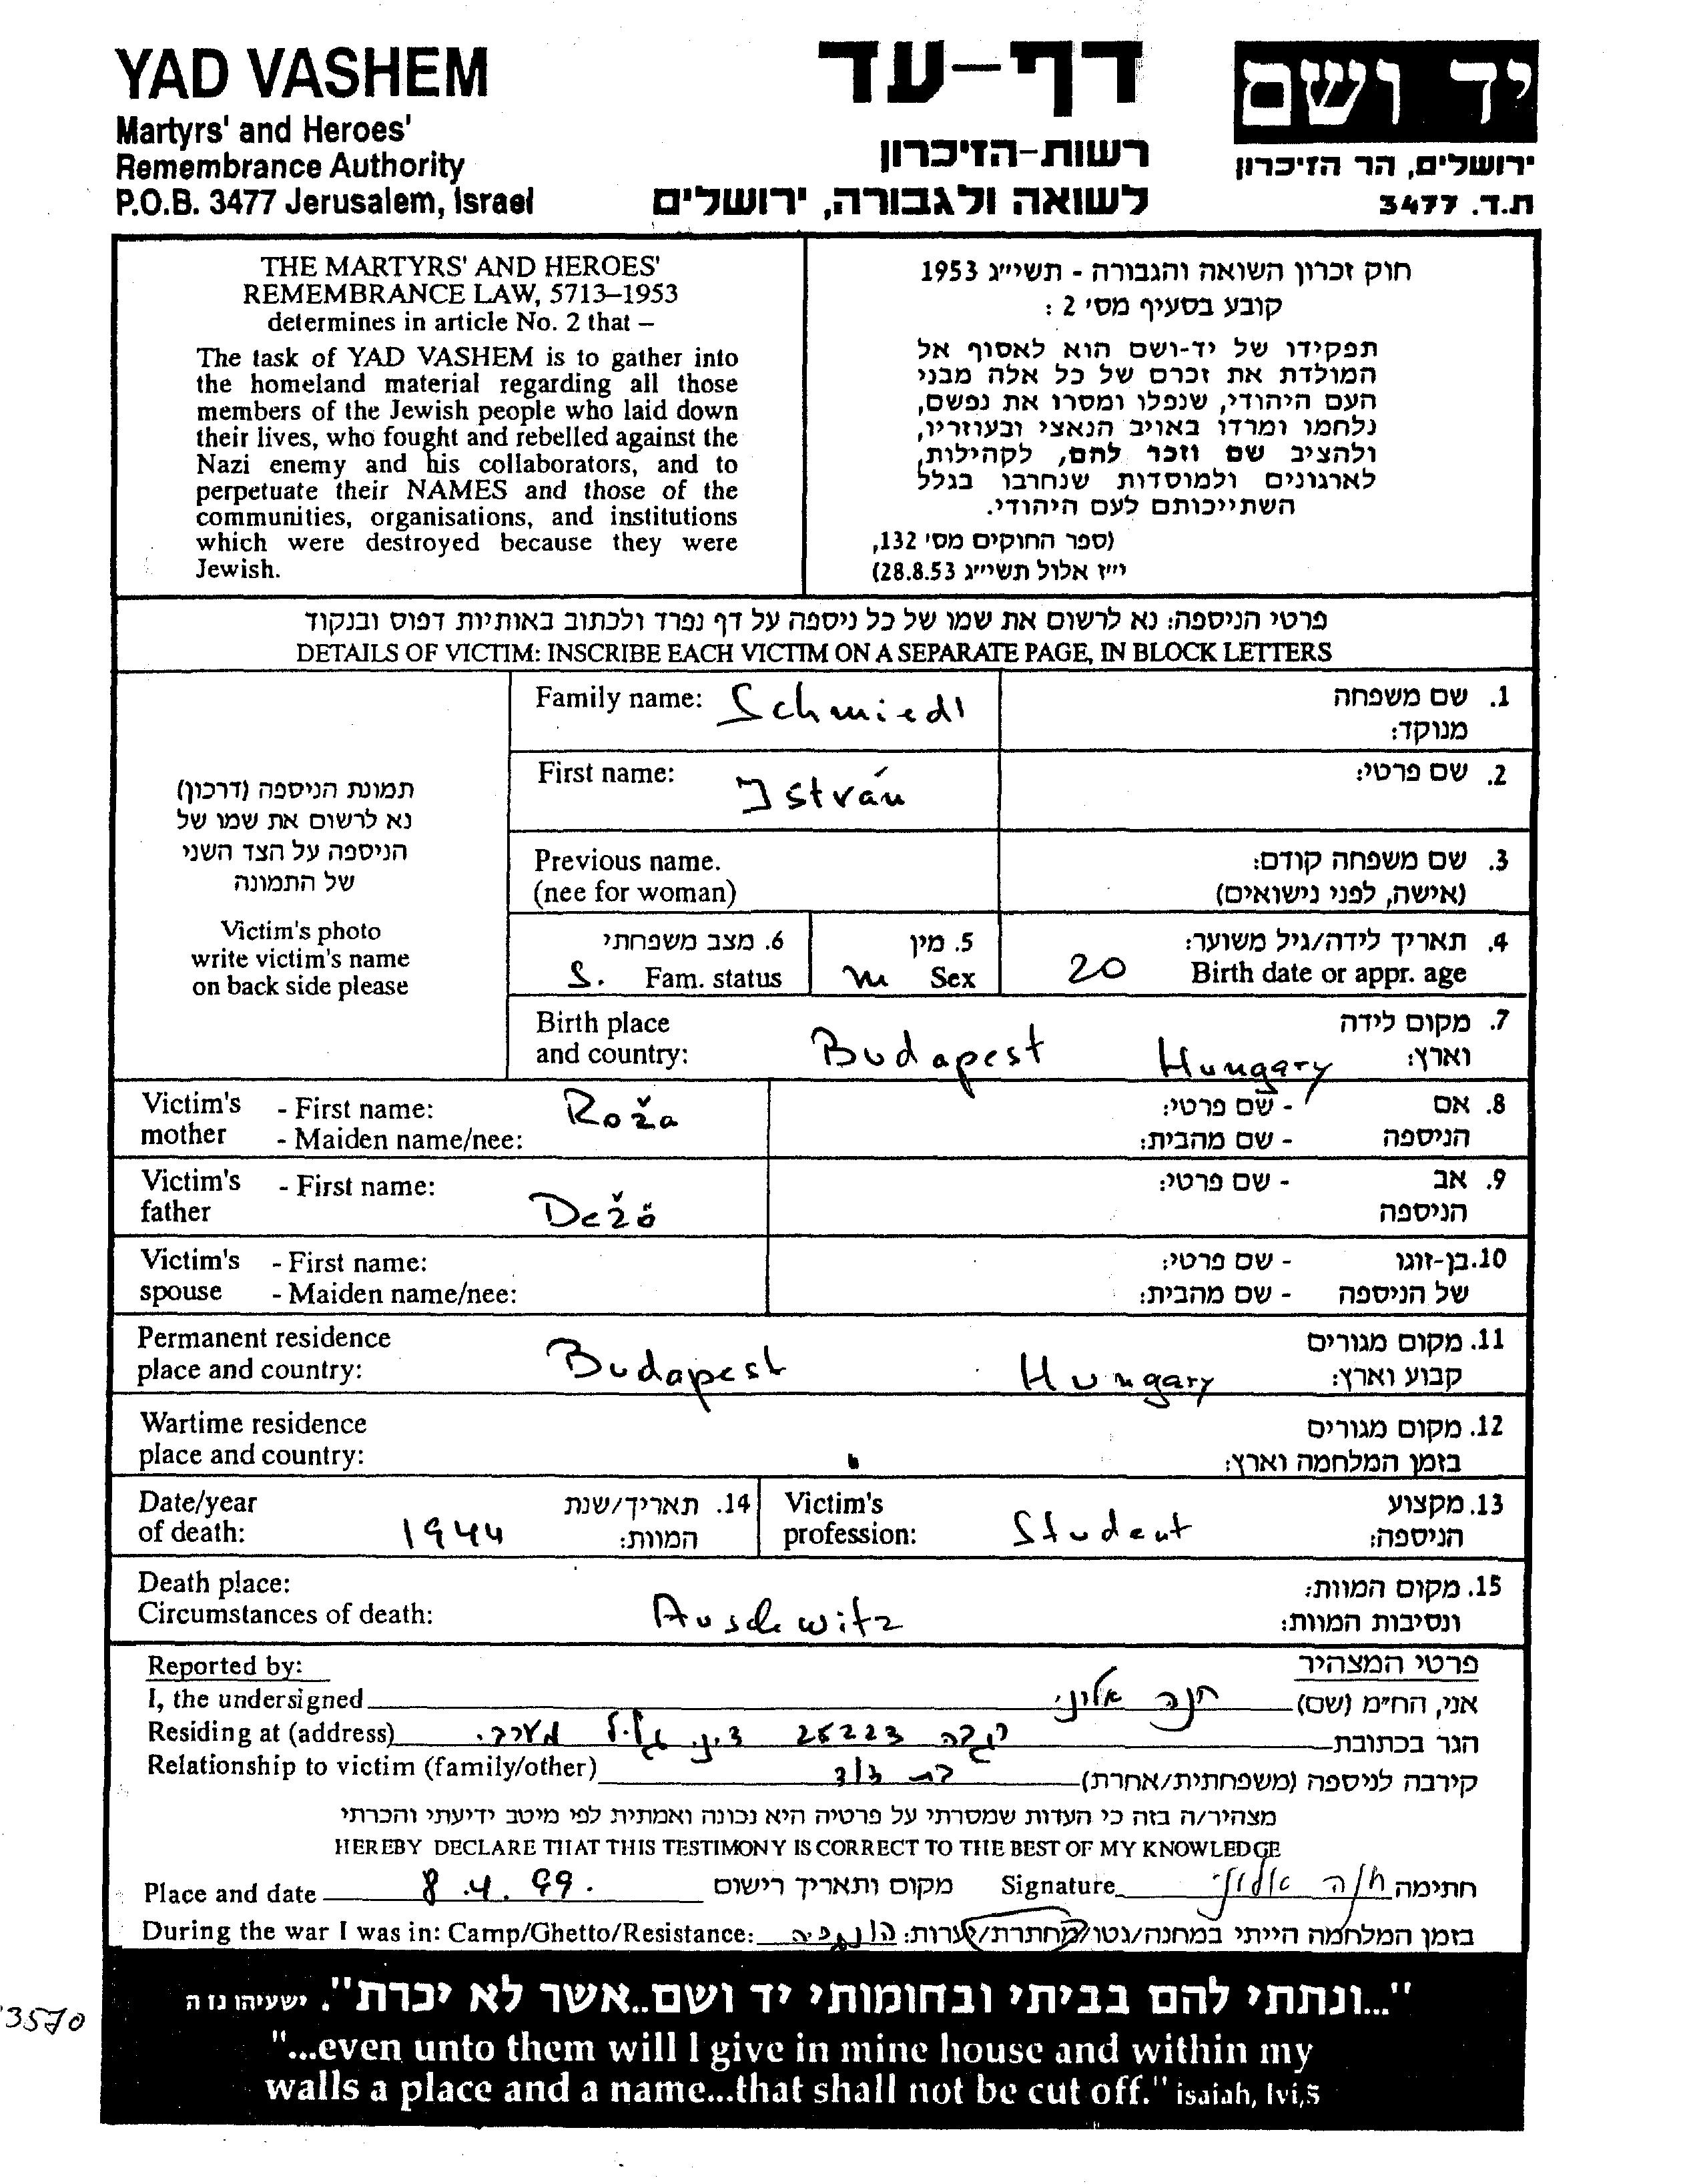 YAD VASHEM
Martyrs' and Heroes'
Remembrance Authority
P.O.B. 3477 Jerusalem, Israel
דף-עד
רשות-הזיכרון
לשואה ולגבורה, ירושלים
יד ושם
ירושלים, הר הזיכרון
ת.ד. 3477
THE MARTYRS' AND HEROES'
REMEMBRANCE LAW, 5713–1953
determines in article No. 2 that –
The task of YAD VASHEM is to gather into
the homeland material regarding all those
members of the Jewish people who laid down
their lives, who fought and rebelled against the
Nazi enemy and his collaborators, and to
perpetuate their NAMES and those of the
communities, organisations, and institutions
which were destroyed because they were
Jewish.
חוק זכרון השואה והגבורה - תשי״ג 1953
קובע בסעיף מס׳ 2 :
תפקידו של יד-ושם הוא לאסוף אל
המולדת את זכרם של כל אלה מבני
העם היהודי, שנפלו ומסרו את נפשם,
נלחמו ומרדו באויב הנאצי ובעוזריו,
ולהציב שם וזכר להם, לקהילות,
לארגונים ולמוסדות שנחרבו בגלל
השתייכותם לעם היהודי.
(ספר החוקים מס׳ 132,
י״ז אלול תשי״ג 28.8.53)
פרטי הניספה: נא לרשום את שמו של כל ניספה על דף נפרד ולכתוב באותיות דפוס ובנקוד
DETAILS OF VICTIM: INSCRIBE EACH VICTIM ON A SEPARATE PAGE, IN BLOCK LETTERS
תמונת הניספה (דרכון)
נא לרשום את שמו של
הניספה על הצד השני
של התמונה
Victim's photo
write victim's name
on back side please
Family name: Schmiedl 1. שם משפחה
מנוקד:
First name: István 2. שם פרטי:
Previous name. 3. שם משפחה קודם:
(nee for woman) (אישה, לפני נישואים)
6. מצב משפחתי 5. מין 4. תאריך לידה/גיל משוער:
S. Fam. status m Sex 20 Birth date or appr. age
Birth place 7. מקום לידה
and country: Budapest Hungary וארץ:
Victim's - First name: Roža - שם פרטי: 8. אם
mother - Maiden name/nee: - שם מהבית: הניספה
Victim's - First name: - שם פרטי: 9. אב
father Dežö הניספה
Victim's - First name: - שם פרטי: 10. בן-זוגו
spouse - Maiden name/nee: - שם מהבית: של הניספה
Permanent residence 11. מקום מגורים
place and country: Budapest Hungary קבוע וארץ:
Wartime residence 12. מקום מגורים
place and country: בזמן המלחמה וארץ:
Date/year 14. תאריך/שנת Victim's 13. מקצוע
of death: 1944 המוות: profession: Student הניספה:
Death place: 15. מקום המוות:
Circumstances of death: Auschwitz ונסיבות המוות:
Reported by: פרטי המצהיר
I, the undersigned חנה אלוני אני, הח״מ (שם)
Residing at (address) 25223 גליל מערבי. הגר בכתובת
Relationship to victim (family/other) בת דוד קירבה לניספה (משפחתית/אחרת)
מצהיר/ה בזה כי העדות שמסרתי על פרטיה היא נכונה ואמתית לפי מיטב ידיעתי והכרתי
HEREBY DECLARE THAT THIS TESTIMONY IS CORRECT TO THE BEST OF MY KNOWLEDGE
Place and date 8.4.99. מקום ותאריך רישום Signature חנה אלוני חתימה
During the war I was in: Camp/Ghetto/Resistance: בזמן המלחמה הייתי במחנה/גטו/מחתרת/יערות:
"...ונתתי להם בביתי ובחומותי יד ושם..אשר לא יכרת". ישעיהו נו ה
"...even unto them will I give in mine house and within my
walls a place and a name...that shall not be cut off." isaiah, lvi,5
3570